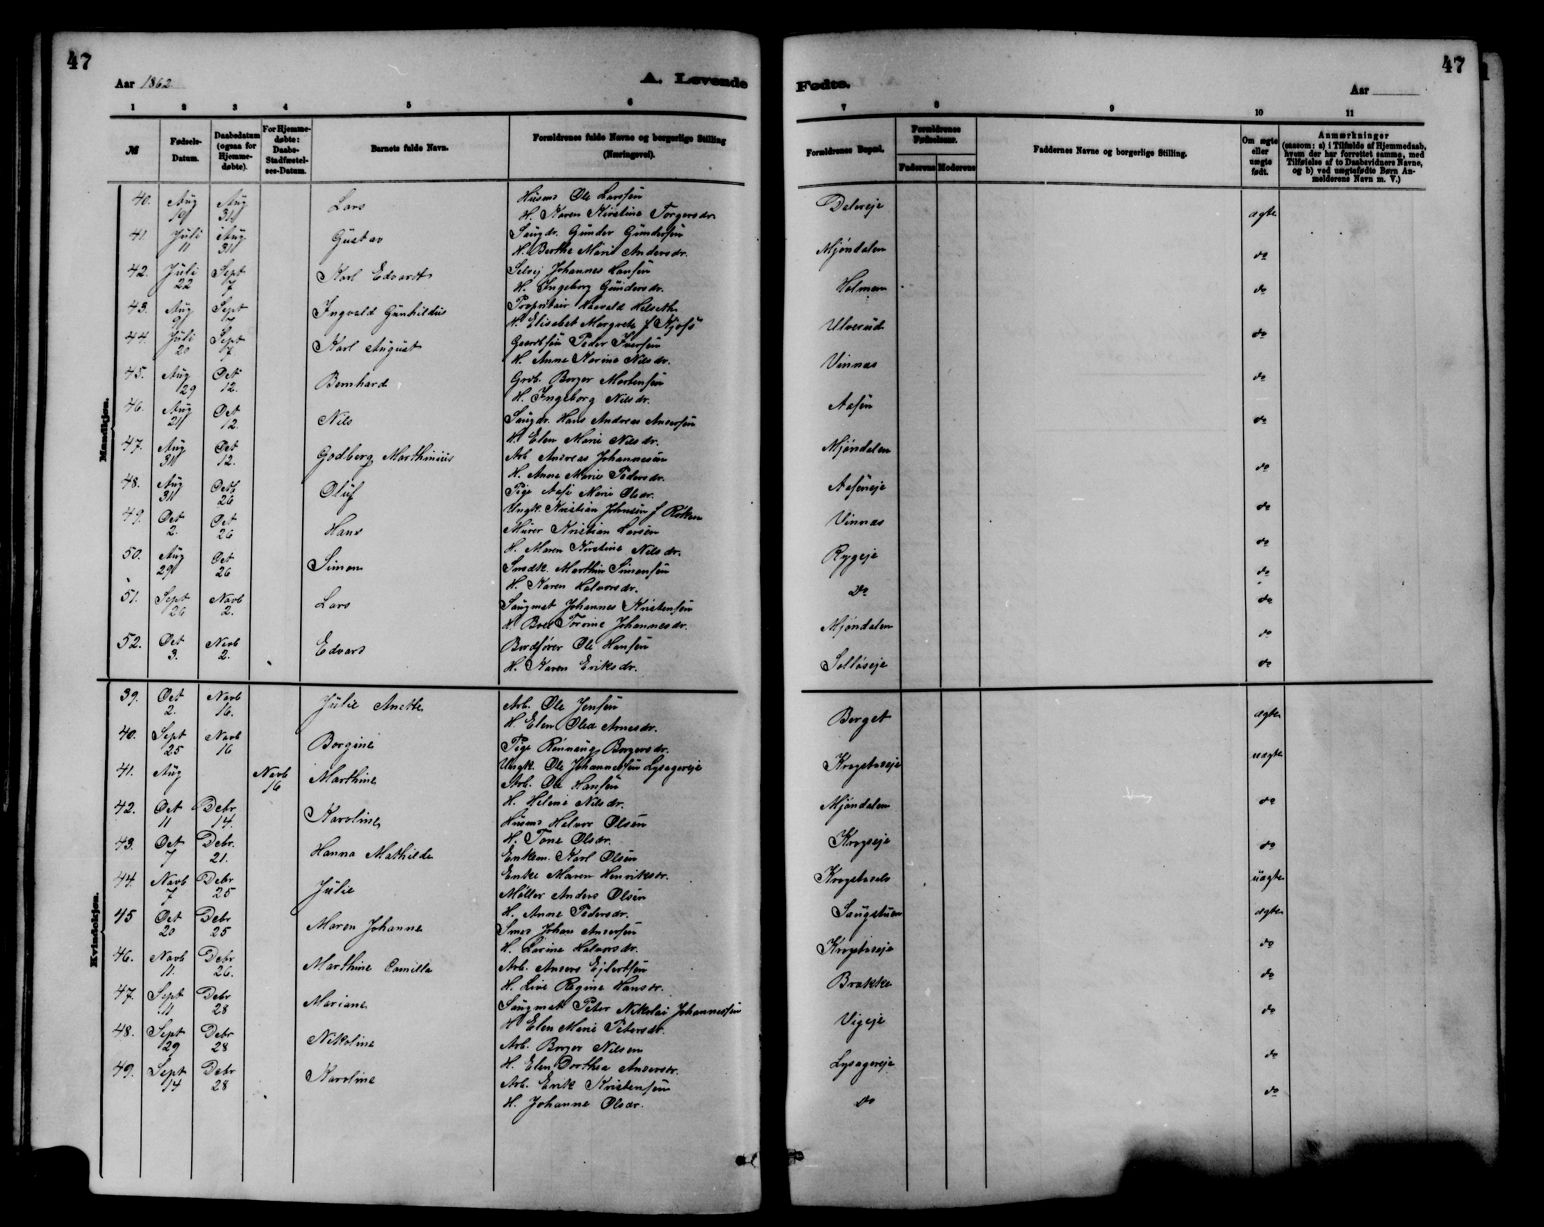 47
Aar 1862
A. Levende
1 2 3 4 5 6
№
Fødsels-Datum.
Daabsdatum (ogsaa for Hjemme-døbte).
For Hjemme-døbte: Daabs-Stadfæstel-ses-Datum.
Barnets fulde Navn.
Forældrenes fulde Navne og borgerlige Stilling (Næringsvei).
Mandkjøn.
40. Aug 19 Aug 31 Lars Husmd Ole Larssen
H. Karen Kirstine Torgersdr.
41 Juli 11 Aug 31 Gustav Saugdr. Gunder Gundersen
H. Berthe Marie Andersdr.
42. Juli 22 Sept 7 Karl Edvardt Selvej Johannes Hansen
H. Ingeborg Gundersdr.
43. Aug 9 Sept 7 Ingvald Gunhildus
H. Elisabet Margrete f
44 Juli 20 Sept 7 Karl August Peder Iversen
H. Anne Norine Nilsdr.
45. Aug 29 Oct 12. Bernhard Grub. Borger Mortensen
H. Ingeborg Nilsdr.
46. Aug 21 Oct 12 Nils Saugdr. Hans Andreas Andersen
H. Elen Marie Nilsdr.
47. Aug 31 Oct 12. Godberg Marthinius Arb Andreas Johannesen
H. Anne Marie Pedersdr.
48. Aug 31 Octb 26 Oluf Pige Aase Marie Olsdr.
Ungk. Kristian Johnsen f Røken
49. Oct 2. Oct 26 Hans Murer Kristian Larsen
H. Maren Kirstine Nilsdr.
50. Aug 29 Oct 26 Simon Smedk. Marthin Simensen
H. Karen Halvorsdr.
51. Sept 26 Novb 2. Lars Saugmst Johannes Kristensen
H. Boel Torine Johannesdr.
52. Oct 3. Novb 2. Edvard Bordfører Ole Hansen
H. Karen Eriksdr.
Kvindekjøn.
39. Oct 2 Novb 16. Julie Anette Arb. Ole Jensen
H. Elen Olea Arnesdr.
40. Sept 25 Novb 16 Borgine Pige Rønnaug Borgersdr.
Ungk. Ole Johannessen Lysagereje
41. Aug Novb 16 Marthine Arb. Ole Hansen
H. Helene Nilsdr.
42. Oct 11 Debr 14. Karoline Husmd Halvor Olsen
H. Tone Olsdr.
43. Oct 7 Debr. 21. Hanna Mathilde Enkem. Karl Olsen
Enke Maren Henriksdr.
44. Novb 7 Debr 25 Julie Møller Anders Olsen
H. Anne Pedersdr.
45 Oct 20 Debr 25 Maren Johanne Smed Johan Andersen
H. Larine Halvorsdr.
46. Novb 11. Debr 26. Marthine Camilla Arb. Anders Ejlertsen
H. Line Regine Hansdr.
47. Sept 11 Debr 28 Mariane Saugmst Peter Nikolai Johannessen
H. Elen Marie Petersdr.
48. Sept 29 Debr 28 Nikoline Arb. Borger Nilsen
H. Elen Dorthea Andersdr.
49. Sept 14 Debr 28 Karoline Arb. Erik Kristensen
H. Johanne Olsdr.
47
Fødte.
Aar
7 8 9 10 11
Forældrenes Bopæl.
Forældrenes Fødselsaar.
Faderens Moderens
Faddernes Navne og borgerlige Stilling.
Om ægte eller uægte født.
Anmærkninger (saasom: a) i Tilfælde af Hjemmedaab, hvem der har forrettet samme, med Tilføielse af to Daabsvidners Navne, og b) ved uægtefødte Børn An-melderens Navn m. V.)
Dalseje ægte
Mjøndalen do
Holmen do
Ulverud do
Vinnas do
Aasen do
Mjøndalen do
Aaseneje do
Vinnas do
Rygeje do
do do
Mjøndalen do
Solløseje do
Berget ægte
Krogebaseje uægte
Mjøndalen do
Krogseje do
Krogebasels uægte
Saugstuen ægte
Krogebaseje do
Brakke do
Vigeje do
Lysagereje do
do do